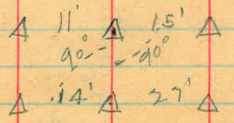 11' 15'
90° 90°
14' 27'